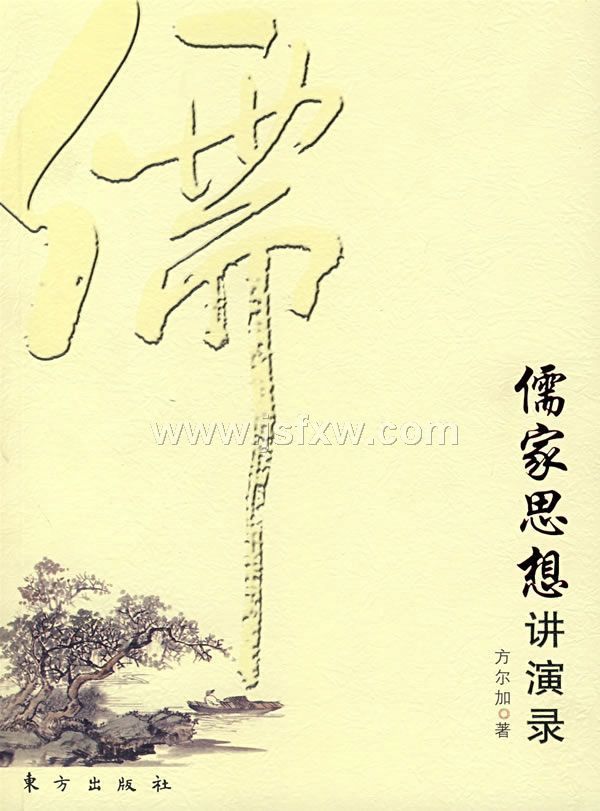 儒
儒家思想讲演录
方尔加◎著
www.jsfxw.com
東方出版社